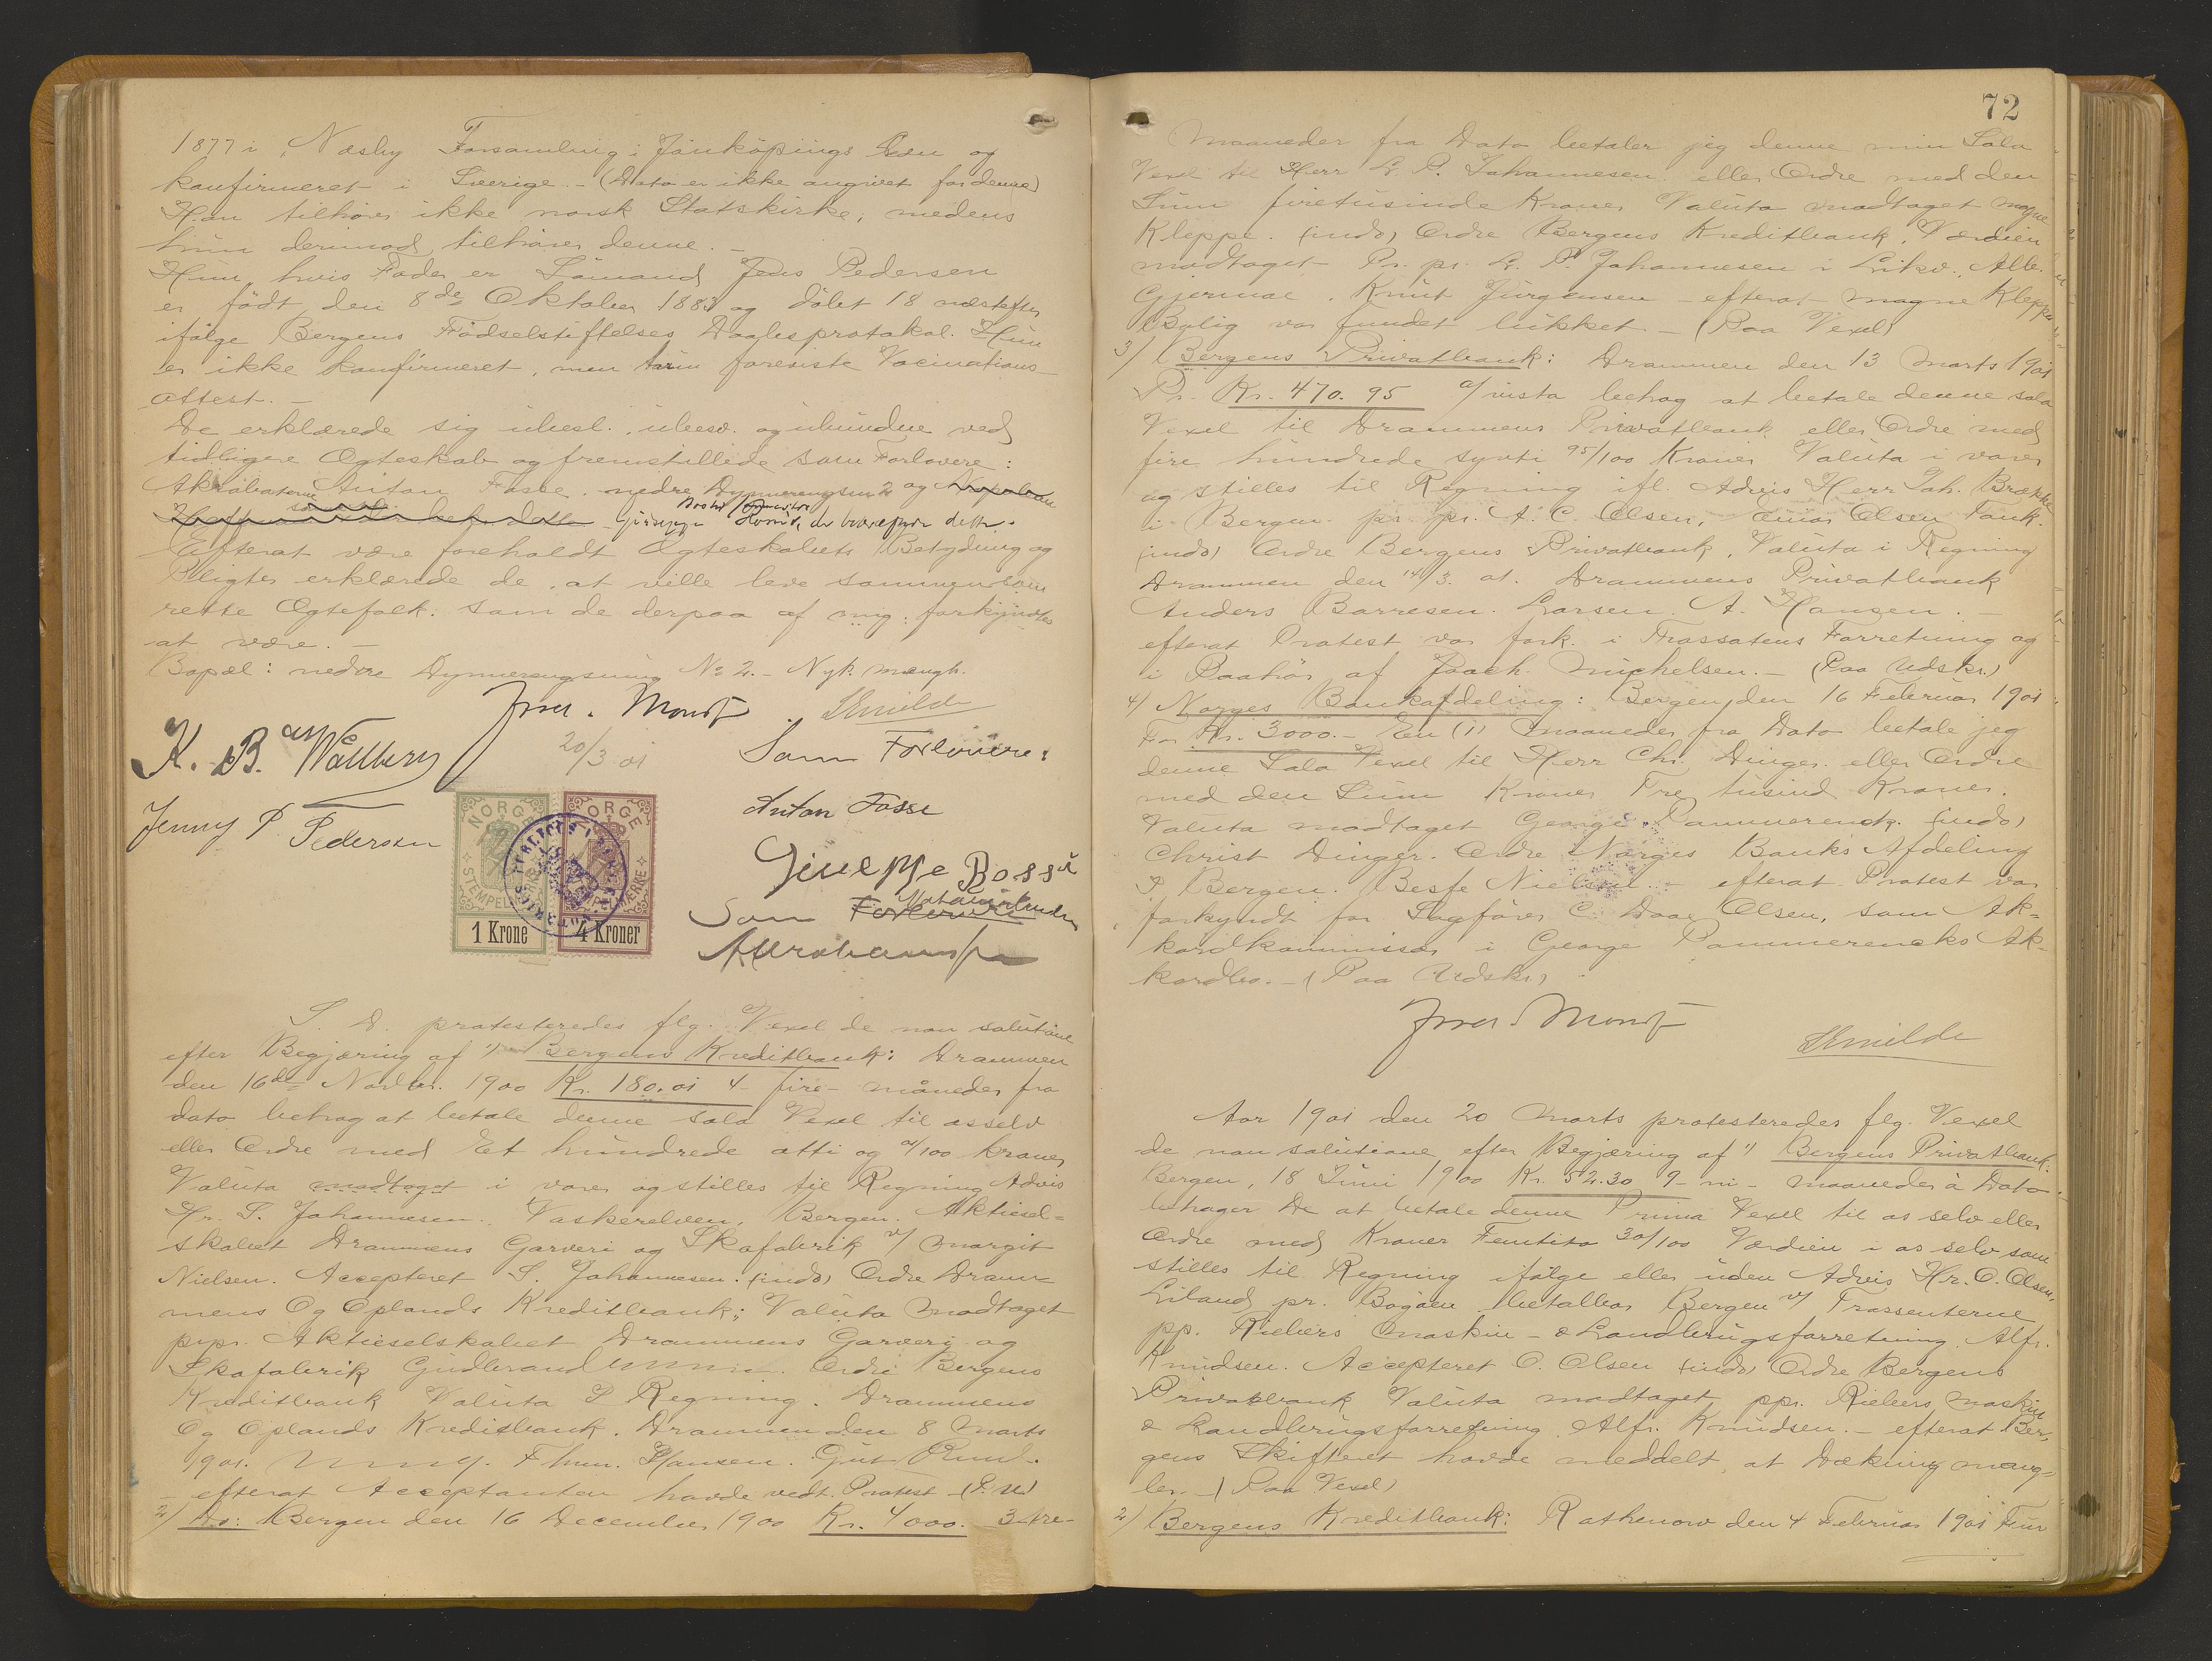 1877 i Næsby Forsamling i Jönköpings Læn og
konfirmeret i Sverige. - (Dato er ikke angivet for denne)
Han tilhører ikke norsk Statskirke, medens
hun derimod tilhører denne. -
Hun, hvis Fader er Sömand Jens Pedersen
er födt den 8de Oktober 1883 og döbt 18 næstefter
ifölge Bergens Födselstiftelses Daabsprotokol. Hun
er ikke konfirmeret, men foreviste Vacinations-
attest. -
De erklærede sig ubesl. ubesv. og ubundne ved
tidligere Ægteskab og fremstillede som Forlovere:
Akrobaterne Anton Fosse nedre Dynnerengsm 2 og
Giuseppe der bekræftede dette.
Efterat være foreholdt Ægteskabets Betydning og
Pligter erklærede de, at ville leve sammen som
rette Ægtefolk: som de derpaa af mig forkyndtes
at være. -
Bopæl: nedre Dynnerengsmug No 2. - Nyk. mangl.
Smilde
K. B. Wallberg
20/3 01
Som Forlovere:
Jenny P. Pedersen
Anton Fosse
Giuseppe Bossi
Som Forlovere
NORGE NORGE
STEMPELMÆRKE STEMPELMÆRKE
1 Krone 4 Kroner
S. D. protesteredes flg. Vexel de non solutione
efter Begjæring af 1) Bergens Kreditbank: Drammen
den 16de Novbr. 1900 Kr. 180.01 4 - fire - måneder fra
dato behag at betale denne sola Vexel til osselv
eller Ordre med Et hundrede otti og 01/100 Kroner
Valuta modtaget i varer og stilles til Regning Advis
Hr. S. Johannesen. Vaskerelven, Bergen. Aktiesel=
skabet Drammens Garveri og Skofabrik v/ Margit
Nielsen. Accepteret S. Johannesen. (indo) Ordre Dram=
mens Og Oplands Kreditbank; Valuta Modtaget
prpr. Aktieselskabet Drammens Garveri og
Skofabrik Gudbrand Ordre Bergens
Kreditbank Valuta I Regning. Drammens
Og Oplands Kreditbank. Drammen den 8 Marts
1901. Hansen.
- efterat Acceptanten havde vedt. Protest - (P. U.)
2) Do: Bergen den 16 December 1900 Kr. 4000. 3 - tre -
72
Maaneder fra Dato betaler jeg denne min Sola
Vexel til Herr L. P. Johannesen eller Ordre med den
Sum firetusinde Kroner Valuta modtaget Magne
Kleppe. (indo) Ordre Bergens Kreditbank. Værdien
modtaget Pr. pr. L. P. Johannesen i Likv. Alb.
Gjermoe. Knut Jürgensen efterat Magne Kleppes
Bolig var fundet lukket. - (Paa Vexel)
3) Bergens Privatbank: Drammen den 13 Marts 1901
Pr. Kr. 470.95 a/ vista behag at betale denne sola
Vexel til Drammens Privatbank eller Ordre med
fire hundrede sytti 95/100 Kroner Valuta i varer
og stilles til Regning ifl. Advis Herr Joh. Brekke
i Bergen pr. pr. A. C. Olsen, Einar Olsen
(indo) Ordre Bergens Privatbank, Valuta i Regning
Drammen den 14/3. 01. Drammens Privatbank
Anders Borresen. Larsen. A. Hansen. -
efterat Protest var fork. i Trassatens Forretning og
i Paahör af Joach. Michelsen. - (Paa Udskr.)
4) Norges Bankafdeling: Bergen, den 16 Februar 1901
For Kr. 3000. - En (1) Maaneder fra Dato betale jeg
denne Sola Vexel til Herr Chr. Dinger eller Ordre
med den Sum Kroner Tre tusind Kroner.
Valuta modtaget George Pommerenck. (indo)
Christ Dinger. Ordre Norges Banks Afdeling
I Bergen. Nielsen - efterat Protest var
forkyndt for Sagförer C. Daae Olsen, som Ak=
kordkommissær i George Pommerencks Ak=
kordbo. - (Paa Udskr.)
Smilde
Aar 1901 den 20 Marts protesteredes flg. Vexel
de non solutione efter Begjæring af 1) Bergens Privatbank.
Bergen, 18 Juni 1900 Kr. 52.30 9 - ni - Maaneder à Dato
behager De at betale denne Prima Vexel til os selv eller
Ordre med Kroner Femtito 30/100 Værdien i os selv som
stilles til Regning ifölge eller uden Advis Hr. O. Olsen,
Liland pr. Bogöen betalbar Bergen v/ Trassenterne
pp. Riebers Maskin- & Landbrugsforretning Alfr.
Knudsen. Accepteret O. Olsen (indo) Ordre Bergens
Privatbank Valuta modtaget pp. Riebers Maskin
& Landbrugsforretning Alfr. Knudsen. - efterat Ber=
gens Skifteret havde meddelt, at Dækning mang=
ler. - (Paa Vexel)
2) Bergens Kreditbank: Rathenow den 4 Februar 1901 Für